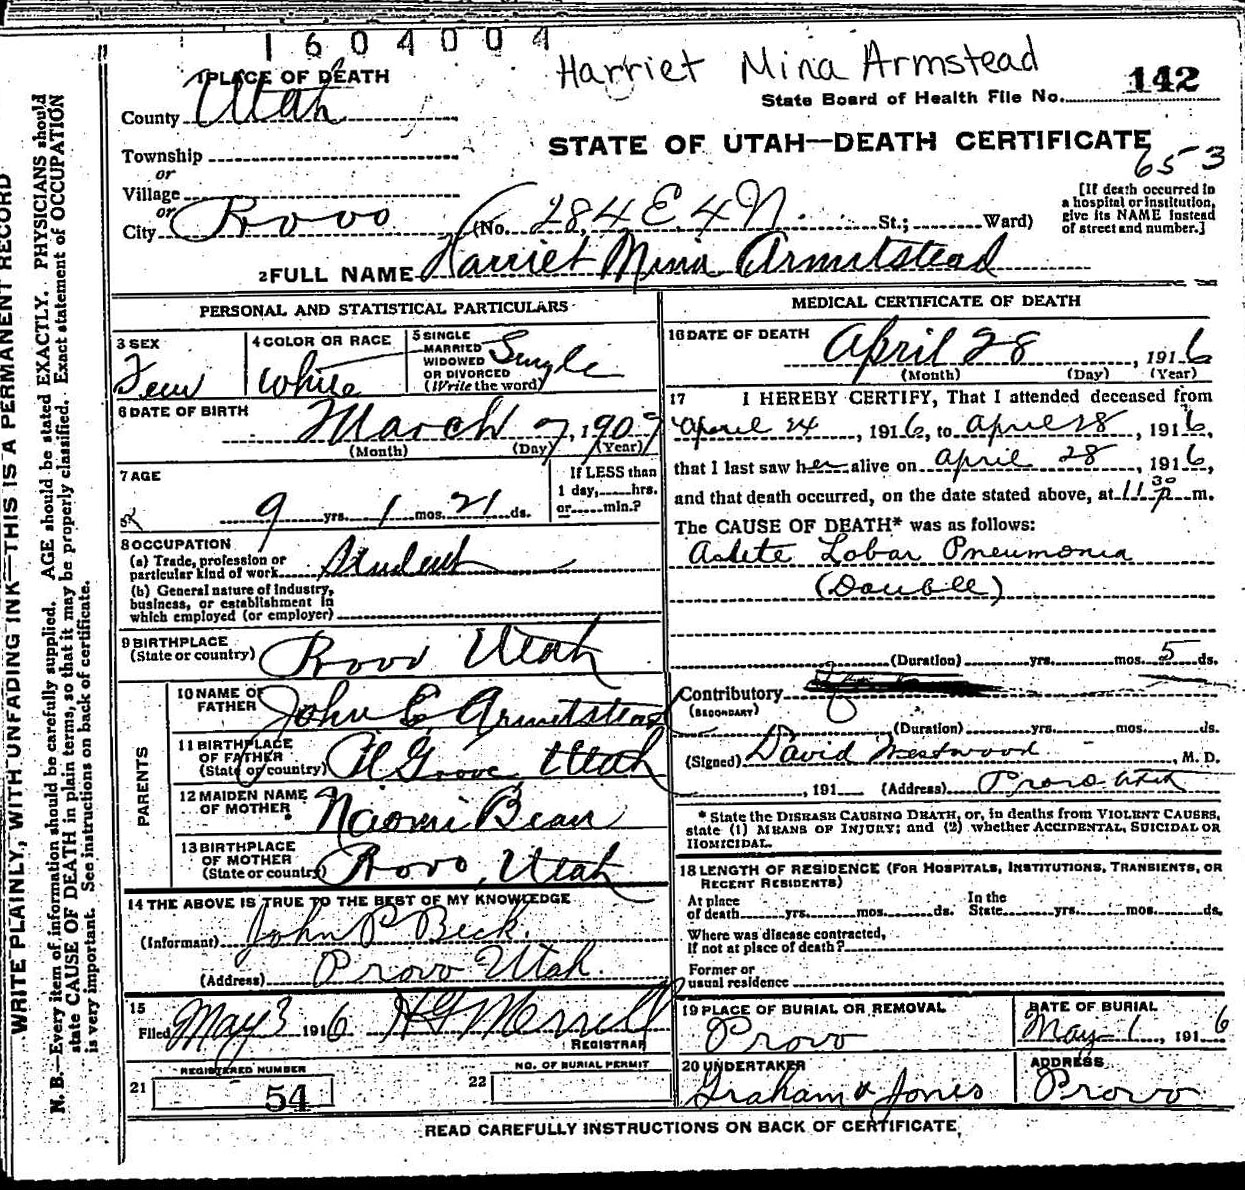 1604004
Harriet Mina Armstead
1 PLACE OF DEATH
State Board of Health File No. 142
County Utah
STATE OF UTAH—DEATH CERTIFICATE
Township
653
or
Village
or
City Provo (No. 284 E. 4 N. St.; Ward)
[If death occurred in
a hospital or institution,
give its NAME instead
of street and number.]
2 FULL NAME Harriet Mina Armitstead
PERSONAL AND STATISTICAL PARTICULARS
3 SEX
Fem
4 COLOR OR RACE
White
5 SINGLE
MARRIED
WIDOWED
OR DIVORCED
(Write the word)
Single
6 DATE OF BIRTH
March 7, 1907
(Month) (Day) (Year)
7 AGE
9 yrs. 1 mos. 21 ds.
If LESS than
1 day, hrs.
or min.?
8 OCCUPATION
(a) Trade, profession or
particular kind of work Student
(b) General nature of Industry,
business, or establishment in
which employed (or employer)
9 BIRTHPLACE
(State or country) Provo Utah
PARENTS
10 NAME OF
FATHER John E Armitstead
11 BIRTHPLACE
OF FATHER
(State or country) Pl Grove Utah
12 MAIDEN NAME
OF MOTHER Naomi Bean
13 BIRTHPLACE
OF MOTHER
(State or country) Provo, Utah
14 THE ABOVE IS TRUE TO THE BEST OF MY KNOWLEDGE
(Informant) John P Beck.
(Address) Provo Utah.
15
Filed May 3 1916 H G Merrell
REGISTRAR
REGISTERED NUMBER
21 54
NO. OF BURIAL PERMIT
22
MEDICAL CERTIFICATE OF DEATH
16 DATE OF DEATH
April 28, 1916
(Month) (Day) (Year)
17 I HEREBY CERTIFY, That I attended deceased from
April 24, 1916, to April 28, 1916,
that I last saw her alive on April 28, 1916,
and that death occurred, on the date stated above, at 11 30 P m.
The CAUSE OF DEATH* was as follows:
Acute Lobar Pneumonia
(Double)
(Duration) yrs. mos. 5 ds.
Contributory
(SECONDARY)
(Duration) yrs. mos. ds.
(Signed) David Westwood, M. D.
, 191 (Address) Provo Utah
* State the DISEASE CAUSING DEATH, or, in deaths from VIOLENT CAUSES,
state (1) MEANS OF INJURY; and (2) whether ACCIDENTAL, SUICIDAL OR
HOMICIDAL.
18 LENGTH OF RESIDENCE (FOR HOSPITALS, INSTITUTIONS, TRANSIENTS, OR
RECENT RESIDENTS)
At place
of death yrs. mos. ds.
In the
State yrs. mos. ds.
Where was disease contracted,
If not at place of death?
Former or
usual residence
19 PLACE OF BURIAL OR REMOVAL
Provo
DATE OF BURIAL
May 1, 1916
20 UNDERTAKER
Graham & Jones
ADDRESS
Provo
READ CAREFULLY INSTRUCTIONS ON BACK OF CERTIFICATE.
WRITE PLAINLY, WITH UNFADING INK—THIS IS A PERMANENT RECORD
N. B.—Every item of information should be carefully supplied. AGE should be stated EXACTLY. PHYSICIANS should
state CAUSE OF DEATH in plain terms, so that it may be properly classified. Exact statement of OCCUPATION
is very important. See instructions on back of certificate.